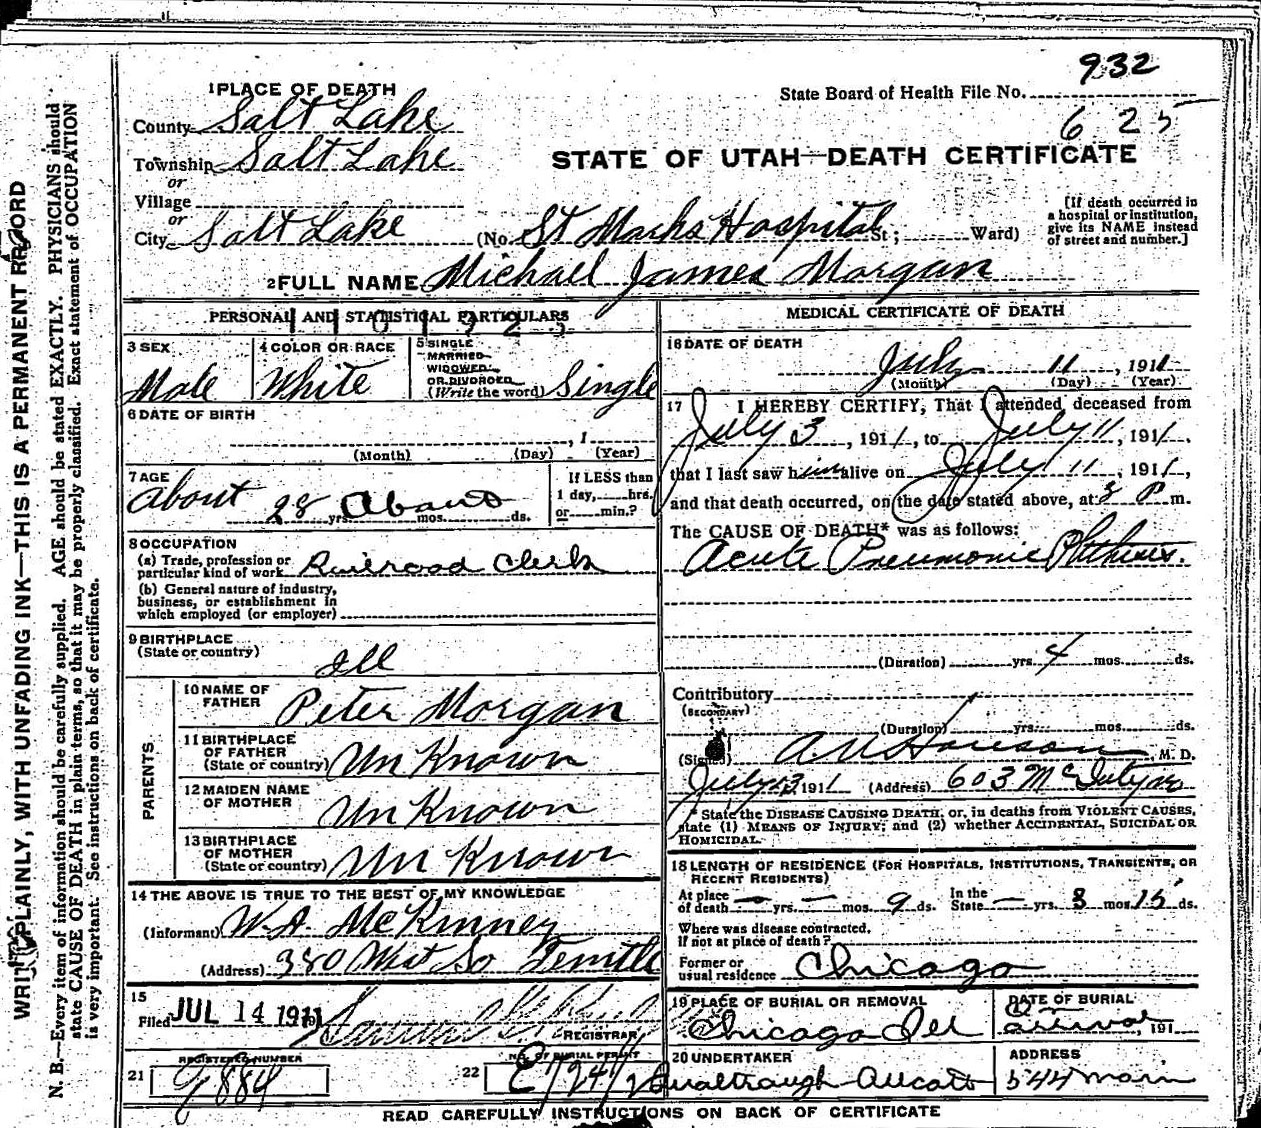 932
1 PLACE OF DEATH
State Board of Health File No.
County Salt Lake
6 25
Township Salt Lake
STATE OF UTAH—DEATH CERTIFICATE
or
Village
or
City Salt Lake (No. St Marks Hospital St; Ward)
[If death occurred in
a hospital or institution,
give its NAME instead
of street and number.]
2 FULL NAME Michael James Morgan
PERSONAL AND STATISTICAL PARTICULARS
3 SEX
Male
4 COLOR OR RACE
White
5 SINGLE
MARRIED
WIDOWED
OR DIVORCED
(Write the word) Single
6 DATE OF BIRTH
, 1
(Month) (Day) (Year)
7 AGE
About 28 yrs. About mos. ds.
If LESS than
1 day, hrs.
or min.?
8 OCCUPATION
(a) Trade, profession or
particular kind of work Railroad Clerk
(b) General nature of industry,
business, or establishment in
which employed (or employer)
9 BIRTHPLACE
(State or country)
Ill
PARENTS
10 NAME OF
FATHER
Peter Morgan
11 BIRTHPLACE
OF FATHER
(State or country) Un Known
12 MAIDEN NAME
OF MOTHER
Un Known
13 BIRTHPLACE
OF MOTHER
(State or country) Un Known
14 THE ABOVE IS TRUE TO THE BEST OF MY KNOWLEDGE
(Informant) W. A. McKinney
(Address) 380 West So Temple
15
Filed JUL 14 1911
REGISTRAR
REGISTERED NUMBER
21
NO. OF BURIAL PERMIT
22
MEDICAL CERTIFICATE OF DEATH
16 DATE OF DEATH
July 11, 1911
(Month) (Day) (Year)
17 I HEREBY CERTIFY, That I attended deceased from
July 3, 1911, to July 11, 1911,
that I last saw him alive on July 11, 1911,
and that death occurred, on the date stated above, at 3 P m.
The CAUSE OF DEATH* was as follows:
Acute Pneumonic Phthisis.
(Duration) yrs. 4 mos. ds.
Contributory
(SECONDARY)
(Duration) yrs. mos. ds.
(Signed) , M. D.
July 13 1911 (Address) 603 McIntyre
* State the DISEASE CAUSING DEATH, or, in deaths from VIOLENT CAUSES,
state (1) MEANS OF INJURY; and (2) whether ACCIDENTAL, SUICIDAL OR
HOMICIDAL.
18 LENGTH OF RESIDENCE (FOR HOSPITALS, INSTITUTIONS, TRANSIENTS, OR
RECENT RESIDENTS)
At place
of death — yrs. — mos. 9 ds.
In the
State — yrs. 3 mos. 15 ds.
Where was disease contracted,
If not at place of death?
Former or
usual residence Chicago
19 PLACE OF BURIAL OR REMOVAL
Chicago Ill
DATE OF BURIAL
arrival, 191
20 UNDERTAKER
ADDRESS
544 Main
READ CAREFULLY INSTRUCTIONS ON BACK OF CERTIFICATE
WRITE PLAINLY, WITH UNFADING INK—THIS IS A PERMANENT RECORD
N. B.—Every item of information should be carefully supplied. AGE should be stated EXACTLY. PHYSICIANS should
state CAUSE OF DEATH in plain terms, so that it may be properly classified. Exact statement of OCCUPATION
is very important. See instructions on back of certificate.